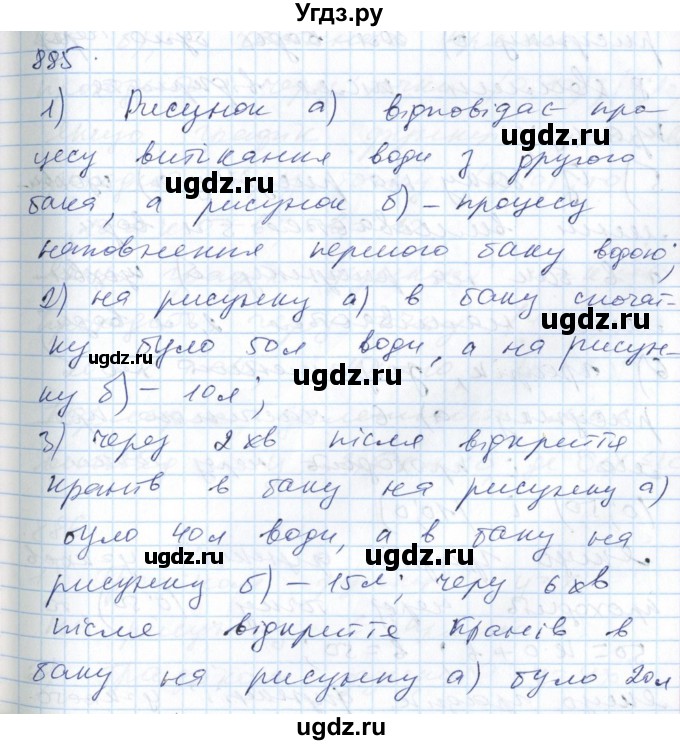 Угдз.ру
885.
1) Рисунок а) відповідає про-
цесу витікання води з другого
бака, а рисунок б) – процесу
наповнення першого баку водою;
2) на рисунку а) в баку спочат-
ку було 50л води, а на рисун-
ку б) – 10л;
3) через 2хв після відкриття
кранів в баку на рисунку а)
було 40л води, а в баку на
рисунку б) – 15л; через 6хв
після відкриття кранів в
баку на рисунку а) було 20л
ugdz.ru
ugdz.ru
ugdz.ru
ugdz.ru
ugdz.ru
ugdz.ru
ugdz.ru
ugdz.ru
ugdz.ru
ugdz.ru